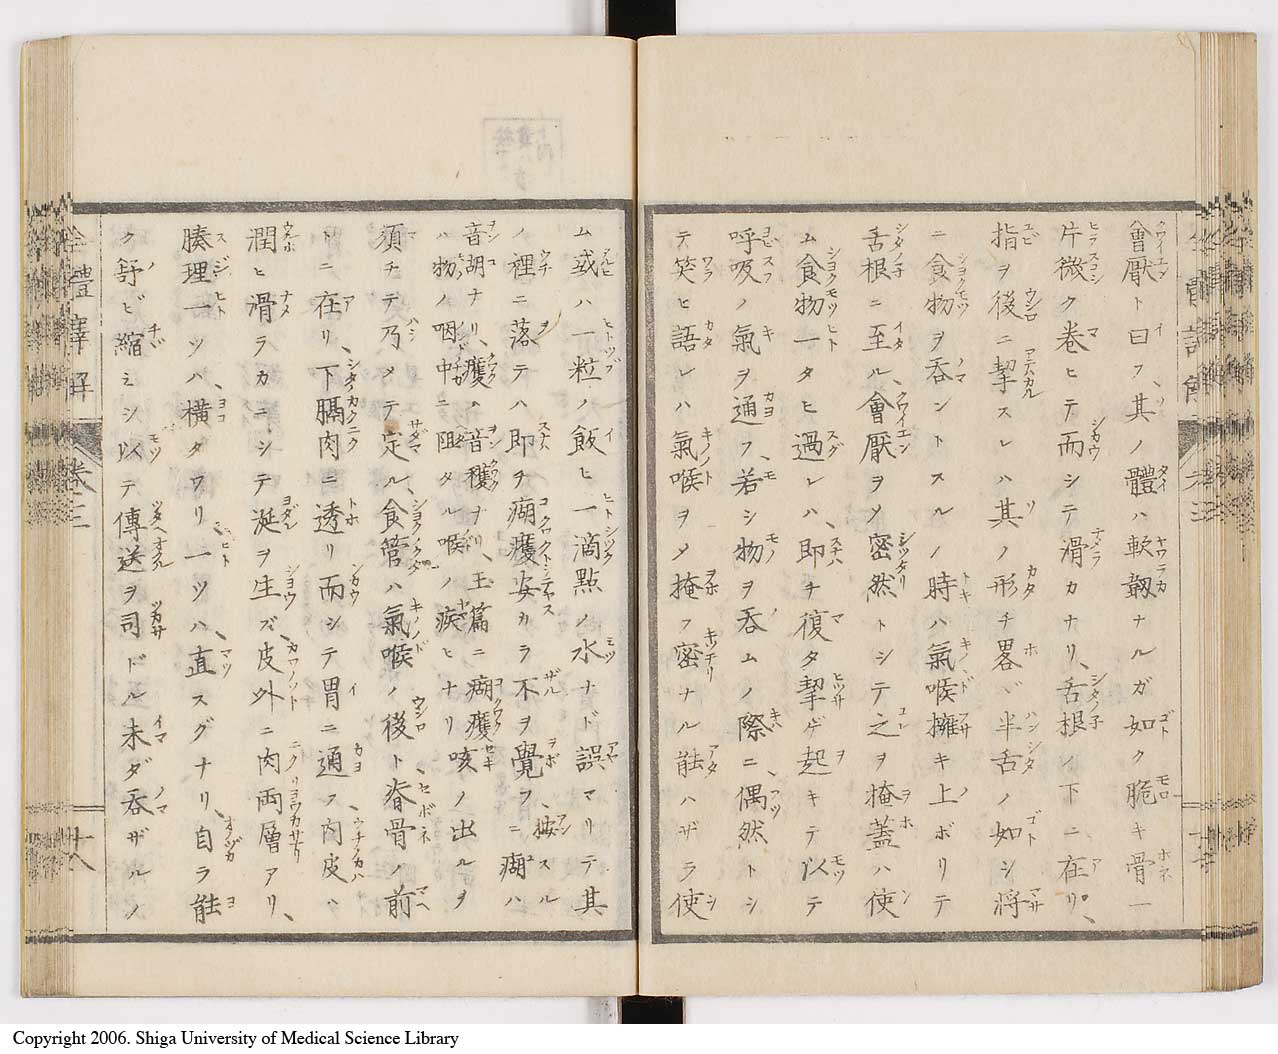 會厭ト曰フ、其ノ體ハ軟韌ナルガ如ク脆キ骨一
片微ク巻ヒテ而シテ滑カナリ、舌根ノ下ニ在リ、
指ヲ後ニ挈スレハ其ノ形チ畧ボ半舌ノ如シ將
ニ食物ヲ呑ントスルノ時ハ氣喉擁キ上ボリテ
舌根ニ至ル、會厭ヲ〆密然トシテ之ヲ掩蓋ハ使
ム食物一タヒ過レハ、即チ復タ挈ゲ起キテ以テ
呼吸ノ氣ヲ通フ、若シ物ヲ呑ムノ際ニ、偶然トシ
テ笑ヒ語レハ氣喉ヲ〆掩フ密ナル能ハザラ使
ム或ハ一粒ノ飯ヒ一滴點ノ水ナド誤マリテ其
ノ裡ニ落テハ即ヲ瑚癭安カラ不ヲ覺フ、按スルニ瑚ハ
音胡ナリ、癭ハ音穫ナリ、玉篇ニ瑚癭
ハ物ノ咽中ニ阻タル喉ノ疾ヒナリ咳ノ出ルヲ
須チテ乃メテ定ル、食管ハ氣喉ノ後ト脊骨ノ前
トニ在リ、下膈肉ニ透リ而シテ胃ニ通フ、内皮ハ
潤ヒ滑ラカニシテ涎ヲ生ズ、皮外ニ肉両層アリ、
腠理一ツハ、横タワリ一ツハ、直スグナリ、自ラ能
ク舒ビ縮ミシ以テ傳送ヲ司ドル未ダ呑ザルノ
全體譯解
巻三
十八
Copyright 2006. Shiga University of Medical Science Library